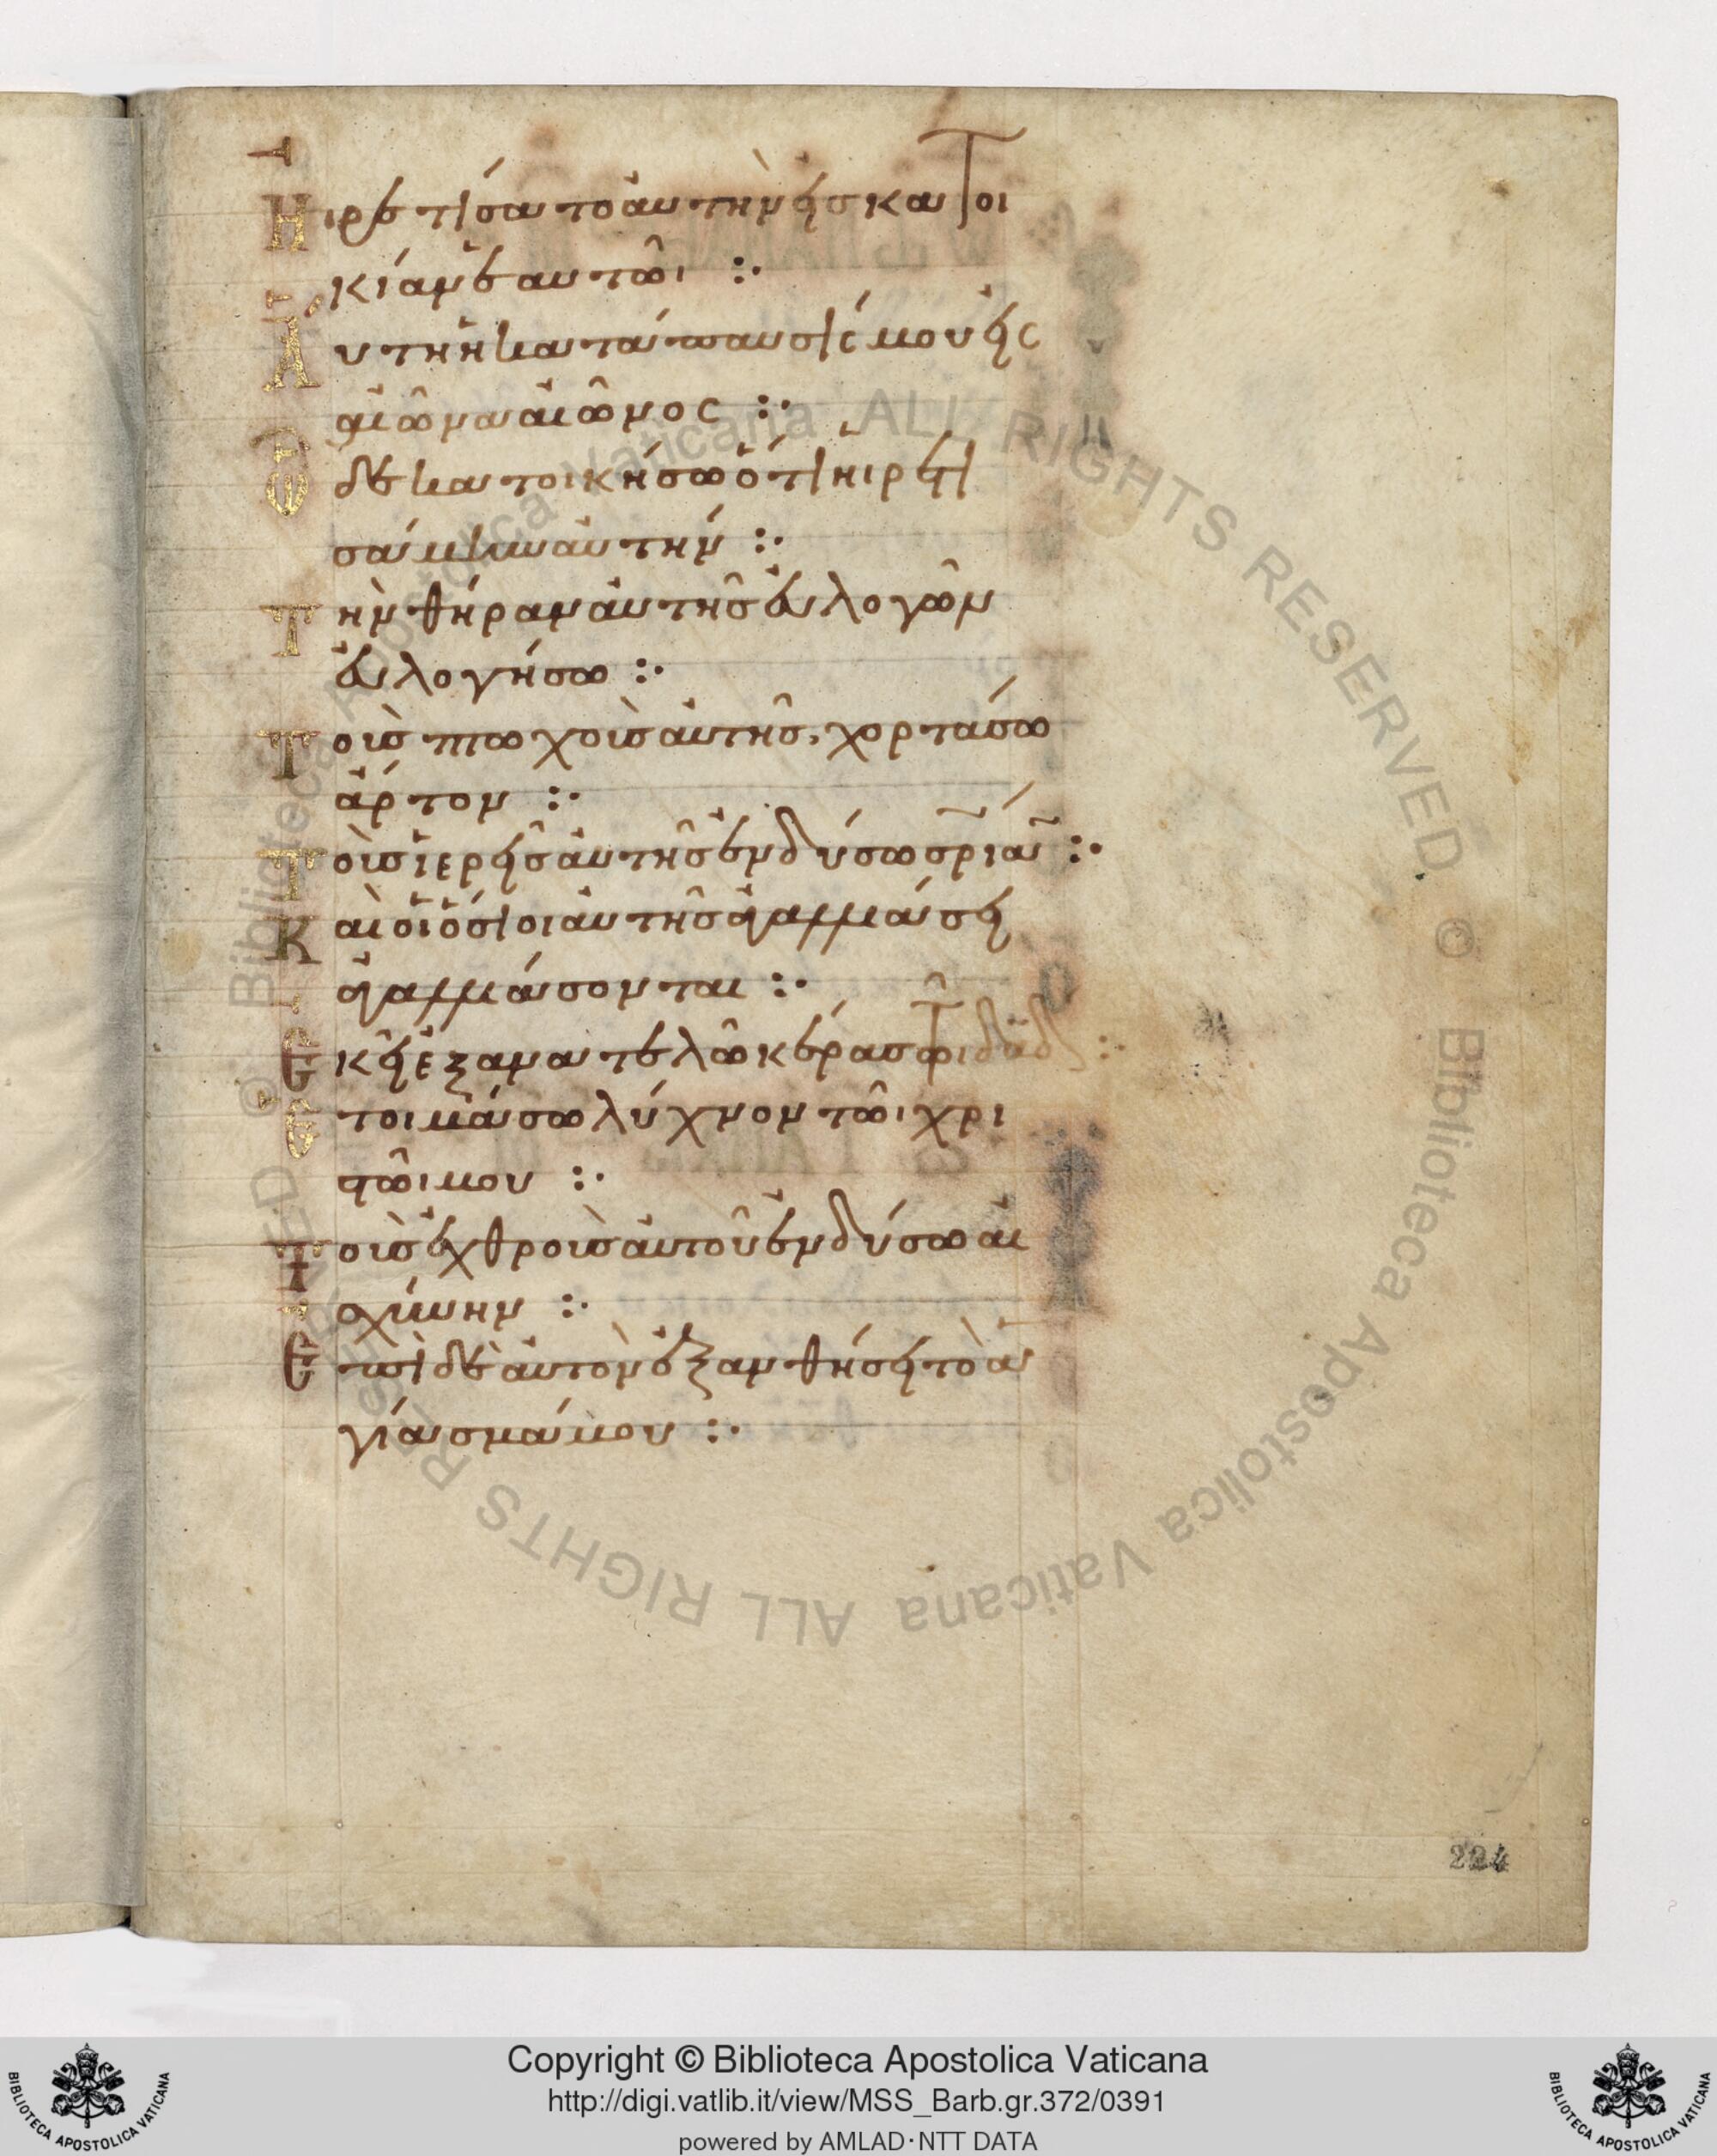 Ηιρετίσατο αὐτὴν εἰς κατοι
κίαν ἑαυτῶι :·
Αὕτη ἡ κατάπαυσίς μου εἰς
αἰῶνα αἰῶνος :·
Ὧδε κατοικήσω ὅτι ἡιρετι
σάμην αὐτήν :·
Τὴν θήραν αὐτῆς εὐλογῶν
εὐλογήσω :·
Τοὺς πτωχοὺς αὐτῆς, χορτάσω
ἄρτον :·
Τοὺς ἱερεῖς αὐτῆς ἐνδύσω σ̅ρ̅ιαν :·
Καὶ οἱ ὅσιοι αὐτῆς ἀγαλλιάσει
ἀγαλλιάσονται :·
Ἐκεῖ ἐξανατελῶ κέρας τῶι δαδ :·
Ἑτοίμασω λύχνον τῶι χρι
στῶι μου :·
Τοὺς ἐχθροὺς αὐτοῦ ἐνδύσω αἰ
σχύνην :·
Ἐπὶ δὲ αὐτὸν ἐξανθήσει τὸ ἁ
γίασμά μου :·
224
© Biblioteca Apostolica Vaticana ALL RIGHTS RESERVED © Biblioteca Apostolica Vaticana ALL RIGHTS RESERVED
Copyright © Biblioteca Apostolica Vaticana
http://digi.vatlib.it/view/MSS_Barb.gr.372/0391
powered by AMLAD·NTT DATA
BIBLIOTECA APOSTOLICA VATICANA
BIBLIOTECA APOSTOLICA VATICANA